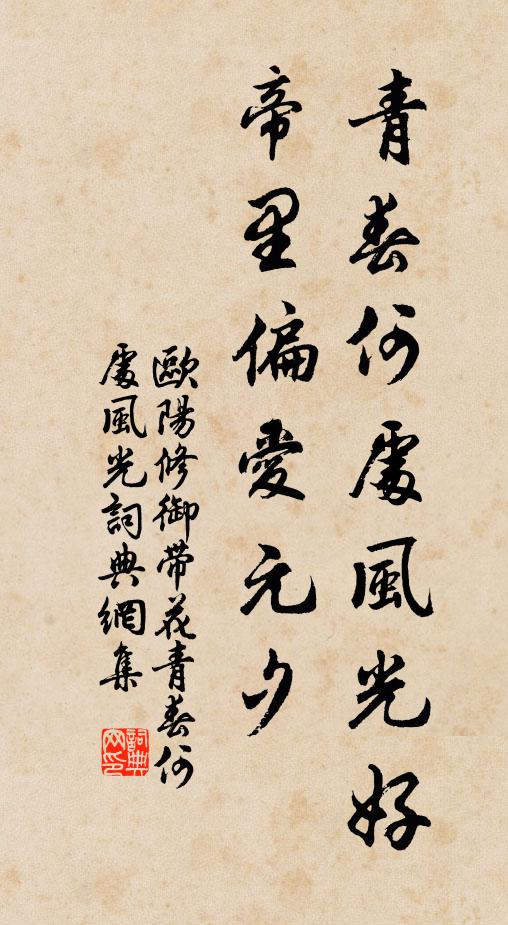 青春何處風光好
帝里偏愛元夕
歐陽修御帶花青春何
處風光詞典網集
詞典
网印